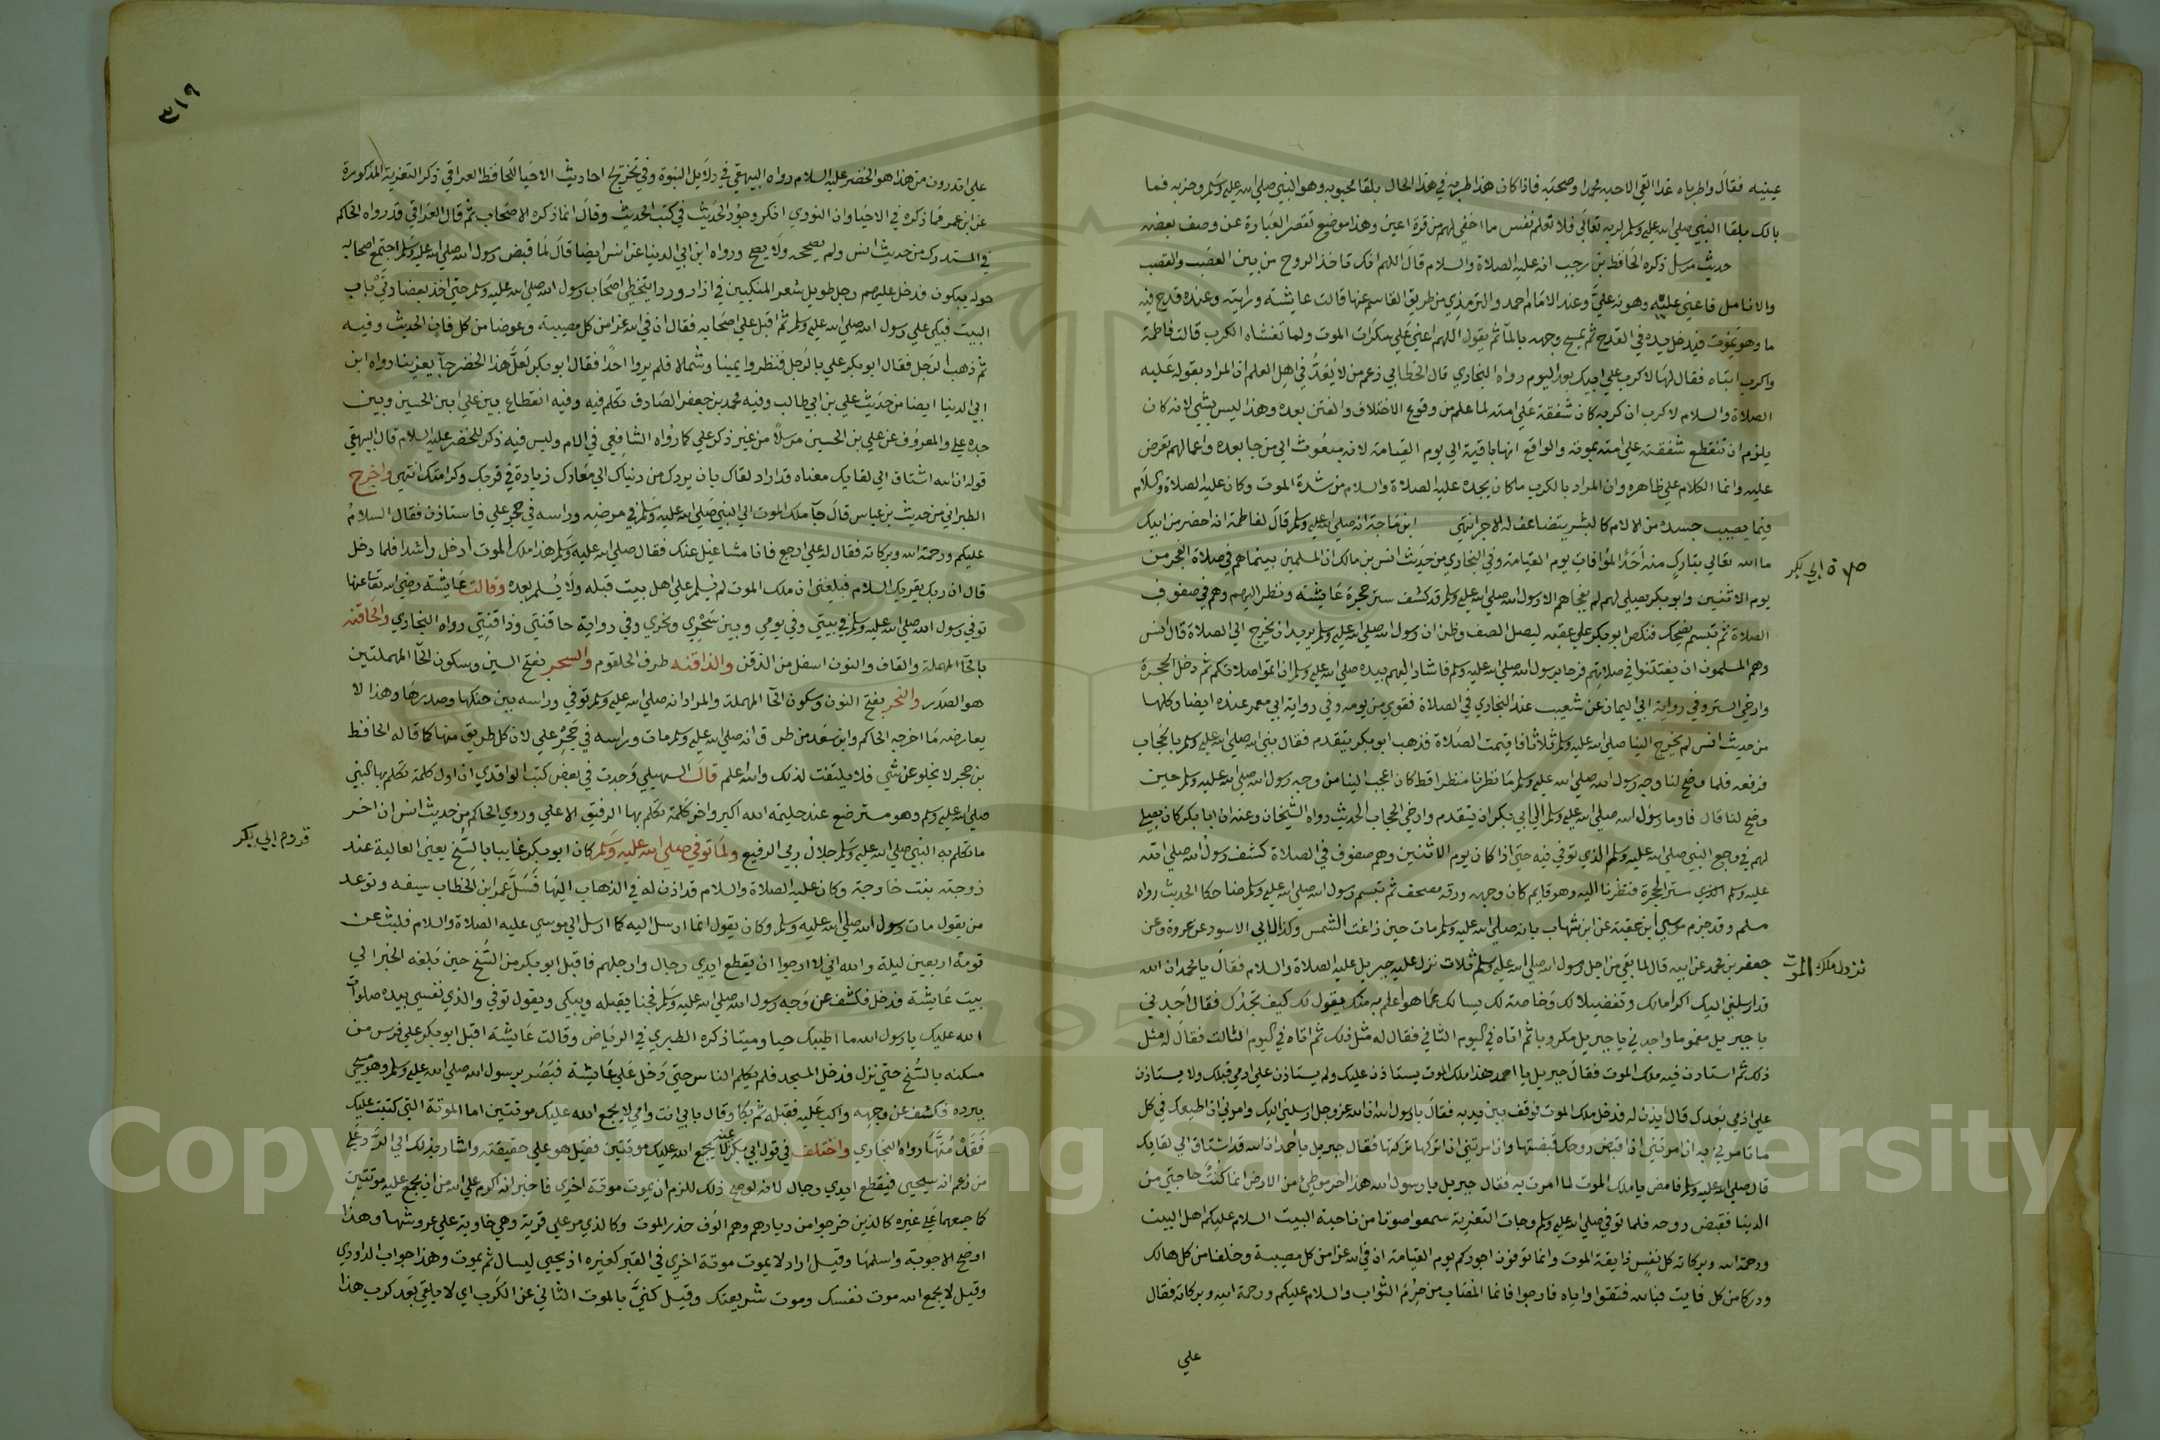 عينيه فقال واطرباه غدا القى الاحبه محمدا وصحبه فاذا كان هذا طربه في هذا الحال بلقا محبوبه وهو النبي صلي الله عليه وسلم وحزبه فما
بالك بلقا النبي صلي الله عليه وسلم لربه تعالي فلا تعلم نفس ما اخفي لهم من قرة اعين وهذا موضع تقصر العبارة عن وصف بعضه
حديث مرسل ذكره الحافظ بن رجب انه عليه الصلاة والسلام قال اللهم انك تاخذ الروح من بين العصب والقصب
والانامل فاعني عليه وهونه علي وعند الامام احمد والترمذي من طريق القاسم عنها قالت عايشة ورايته وعنده قدح فيه
ما وهو يموت فيدخل يده في القدح ثم يمسح وجهه بالما ثم يقول اللهم اعني علي سكرات الموت ولما تغشاه الكرب قالت فاطمة
واكرب ابتاه فقال لها لا كرب علي ابيك بعد اليوم رواه البخاري قال الخطابي زعم من لا يعد في اهل العلم ان المراد بقوله عليه
الصلاة والسلام لا كرب ان كربه كان شفقة علي امته لما علم من وقوع الاختلاف والفتن بعده وهذا ليس بشي لانه كان
يلزم ان تنقطع شفقته علي امته بموته والواقع انها باقية الي يوم القيامة لانه مبعوث الي من جا بعده واعمالهم تعرض
عليه وانما الكلام علي ظاهره وان المراد بالكرب ما كان يجده عليه الصلاة والسلام من شدة الموت وكان عليه الصلاة والسلام
فيما يصيب جسده من الالام كالبشر يتضاعف له الاجر انتهي ابن ماجة انه صلي الله عليه وسلم قال لفاطمة انه احضر من ابيك
ما الله تعالي بتارك منه احدا لموافات يوم القيامة وفي البخاري من حديث انس بن مالك ان المسلمين بينما هم في صلاة الفجر من
صلاة ابي بكر
يوم الاثنين وابو بكر يصلي لهم لم يفجاهم الا رسول الله صلي الله عليه وسلم قد كشف ستر حجرة عايشة ونظر اليهم وهم في صفوف
الصلاة ثم تبسم يضحك فنكص ابو بكر علي عقبه ليصل الصف وظن ان رسول الله صلي الله عليه وسلم يريد ان يخرج الي الصلاة قال انس
وهم المسلمون ان يفتتنوا في صلاتهم فرحا برسول الله صلي الله عليه وسلم فاشار اليهم بيده صلي الله عليه وسلم ان اتموا صلاتكم ثم دخل الحجرة
وارخي الستر وفي رواية ابي اليمان عن شعيب عند البخاري في الصلاة فتوفي من يومه وفي رواية ابي معمر عنده ايضا وكلها
من حديث انس لم يخرج الينا صلي الله عليه وسلم ثلاثا فاقيمت الصلاة فذهب ابو بكر يتقدم فقال نبي الله صلي الله عليه وسلم بالحجاب
فرفعه فلما وضح لنا وجه رسول الله صلي الله عليه وسلم ما نظرنا منظرا قط كان اعجب الينا من وجه رسول الله صلي الله عليه وسلم حين
وضح لنا قال فاوما رسول الله صلي الله عليه وسلم الي ابي بكر ان يتقدم وارخي الحجاب الحديث رواه الشيخان وعنه ان ابا بكر كان يصلي
لهم في وجع النبي صلي الله عليه وسلم الذي توفي فيه حتي اذا كان يوم الاثنين وهم صفوف في الصلاة كشف رسول الله صلي الله
عليه وسلم ستر الحجرة فنظرنا اليه وهو قايم كان وجهه ورقة مصحف ثم تبسم رسول الله صلي الله عليه وسلم ضاحكا الحديث رواه
مسلم وقد جزم موسي ابن عقبة عن ابن شهاب بانه صلي الله عليه وسلم مات حين زاغت الشمس وكذا لابي الاسود عن عروة وعن
جعفر بن محمد عن ابيه قال لما بقي من اجل رسول الله صلي الله عليه وسلم ثلاث نزل عليه جبريل عليه الصلاة والسلام فقال يا محمد ان الله
نزول ملك الموت
قد ارسلني اليك اكراما لك وتفضيلا لك وخاصة لك يسالك عما هو اعلم به منك يقول لك كيف تجدك فقال اجدني
يا جبريل مغموما واجدني يا جبريل مكروبا ثم اتاه في اليوم الثاني فقال له مثل ذلك ثم اتاه في اليوم الثالث فقال له مثل
ذلك ثم استاذن فيه ملك الموت فقال جبريل يا احمد هذا ملك الموت يستاذن عليك ولم يستاذن علي ادمي قبلك ولا يستاذن
علي ادمي بعدك قال ايذن له فدخل ملك الموت فوقف بين يديه فقال يا رسول الله ان الله عز وجل ارسلني اليك وامرني ان اطيعك في كل
ما تامرني به ان امرتني ان اقبض روحك قبضتها وان امرتني ان اتركها تركتها فقال جبريل يا احمد ان الله قد اشتاق الي لقايك
قال صلي الله عليه وسلم فامض يا ملك الموت لما امرت به فقال جبريل يا رسول الله هذا اخر موطئي من الارض انما كنت حاجتي من
الدنيا فقبض روحه فلما توفي صلي الله عليه وسلم وجات التعزية سمعوا صوتا من ناحية البيت السلام عليكم اهل البيت
ورحمة الله وبركاته كل نفس ذايقة الموت وانما توفون اجوركم يوم القيامة ان في الله عزا من كل مصيبة وخلفا من كل هالك
ودركا من كل فايت فبالله فثقوا واياه فارجوا فانما المصاب من حرم الثواب والسلام عليكم ورحمة الله وبركاته فقال
علي
٣١٩
علي اتدرون من هذا هو الخضر عليه السلام رواه البيهقي في دلايل النبوة وفي تخريج احاديث الاحيا للحافظ العراقي ذكر التعزية المذكورة
عن ابن عمر مما ذكره في الاحيا وان النووي انكر وجود الحديث في كتب الحديث وقال انما ذكره الاصحاب ثم قال العراقي قد رواه الحاكم
في المستدرك من حديث انس ولم يصححه ولا يصح ورواه ابن ابي الدنيا عن انس ايضا قال لما قبض رسول الله صلي الله عليه وسلم اجتمع اصحابه
حوله يبكون فدخل عليهم رجل طويل شعر المنكبين في ازار وردا يتخطي اصحاب رسول الله صلي الله عليه وسلم حتي اخذ بعضادتي باب
البيت فبكي علي رسول الله صلي الله عليه وسلم ثم اقبل علي اصحابه فقال ان في الله عزا من كل مصيبة وعوضا من كل فات الحديث وفيه
ثم ذهب الرجل فقال ابو بكر علي بالرجل فنظروا يمينا وشمالا فلم يروا احدا فقال ابو بكر لعل هذا الخضر جا يعزينا رواه ابن
ابي الدنيا ايضا من حديث علي بن ابي طالب وفيه محمد بن جعفر الصادق تكلم فيه وفيه انقطاع بين علي ابن الحسين وبين
جده علي والمعروف عن علي بن الحسين مرسلا من غير ذكر علي كما رواه الشافعي في الام وليس فيه ذكر للخضر عليه السلام قال البيهقي
قوله ان الله اشتاق الي لقايك معناه قد اراد لقاك بان يردك من دنياك الي معادك زيادة في قربك وكرامتك انتهي واخرج
الطبراني من حديث بن عباس قال جا ملك الموت الي النبي صلي الله عليه وسلم في مرضه وراسه في حجر علي فاستاذن فقال السلام
عليكم ورحمة الله وبركاته فقال له علي ارجع فانا مشاغيل عنك فقال صلي الله عليه وسلم هذا ملك الموت ادخل راشدا فلما دخل
قال ان ربك يقريك السلام فبلغني ان ملك الموت لم يسلم علي اهل بيت قبله ولا يسلم بعده وقالت عايشة رضي الله تعالي عنها
توفي رسول الله صلي الله عليه وسلم في بيتي وفي يومي وبين سحري ونحري وفي رواية حاقنتي وذاقنتي رواه البخاري والحاقنة
بالحا المهملة والقاف والنون اسفل من الذقن والذاقنة طرف الحلقوم والسحر بفتح السين وسكون الحا المهملتين
هو الصدر والنحر بفتح النون وسكون الحا المهملة والمراد انه صلي الله عليه وسلم توفي وراسه بين حنكها وصدرها وهذا لا
يعارضه ما اخرجه الحاكم وابن سعد من طرق انه صلي الله عليه وسلم مات وراسه في حجر علي لان كل طريق منها كما قاله الحافظ
بن حجر لا يخلو عن شي فلا يلتفت لذلك والله اعلم قال السهيلي وجدت في بعض كتب الواقدي ان اول كلمة تكلم بها النبي
صلي الله عليه وسلم وهو مسترضع عند حليمة الله اكبر واخر كلمة تكلم بها الرفيق الاعلي وروي الحاكم من حديث انس ان اخر
ما تكلم به النبي صلي الله عليه وسلم جلال ربي الرفيع ولما توفي صلي الله عليه وسلم كان ابو بكر غايبا بالسنح يعني العالية عند
قدوم ابي بكر
زوجته بنت خارجة وكان عليه الصلاة والسلام قد اذن له في الذهاب اليها فسل عمر ابن الخطاب سيفه وتوعد
من يقول مات رسول الله صلي الله عليه وسلم وكان يقول انما ارسل اليه كما ارسل الي موسي عليه الصلاة والسلام فلبث عن
قومه اربعين ليلة والله اني لارجوا ان يقطع ايدي رجال وارجلهم فاقبل ابو بكر من السنح حين بلغه الخبر الي
بيت عايشة فدخل فكشف عن وجه رسول الله صلي الله عليه وسلم فجثا يقبله ويبكي ويقول توفي والذي نفسي بيده صلوات
الله عليك يا رسول الله ما اطيبك حيا وميتا ذكره الطبري في الرياض وقالت عايشة اقبل ابو بكر علي فرس من
مسكنه بالسنح حتي نزل فدخل المسجد فلم يكلم الناس حتي دخل علي عايشة فبصر برسول الله صلي الله عليه وسلم وهو مسجي
ببرده فكشف عن وجهه واكب عليه فقبله ثم بكا وقال بابي انت وامي لا يجمع الله عليك موتتين اما الموتة التي كتبت عليك
فقد متها رواه البخاري واختلف في قول ابي بكر لا يجمع الله عليك موتتين فقيل هو علي حقيقته واشار بذلك الي الرد علي
من زعم انه سيحيي فيقطع ايدي رجال لانه لو صح ذلك للزم ان يموت موتة اخري فاخبر انه اكرم علي الله من ان يجمع عليه موتتين
كما جمعهما علي غيره كالذين خرجوا من ديارهم وهم الوف حذر الموت وكالذي مر علي قرية وهي خاوية علي عروشها وهذا
اوضح الاجوبة واسلمها وقيل اراد لا يموت موتة اخري في القبر كغيره اذ يحيي ليسال ثم يموت وهذا جواب الداودي
وقيل لا يجمع الله موت نفسك وموت شريعتك وقيل كني بالموت الثاني عن الكرب اي لا يلقي بعد كرب هذا
Copyright © King Saud University
1957